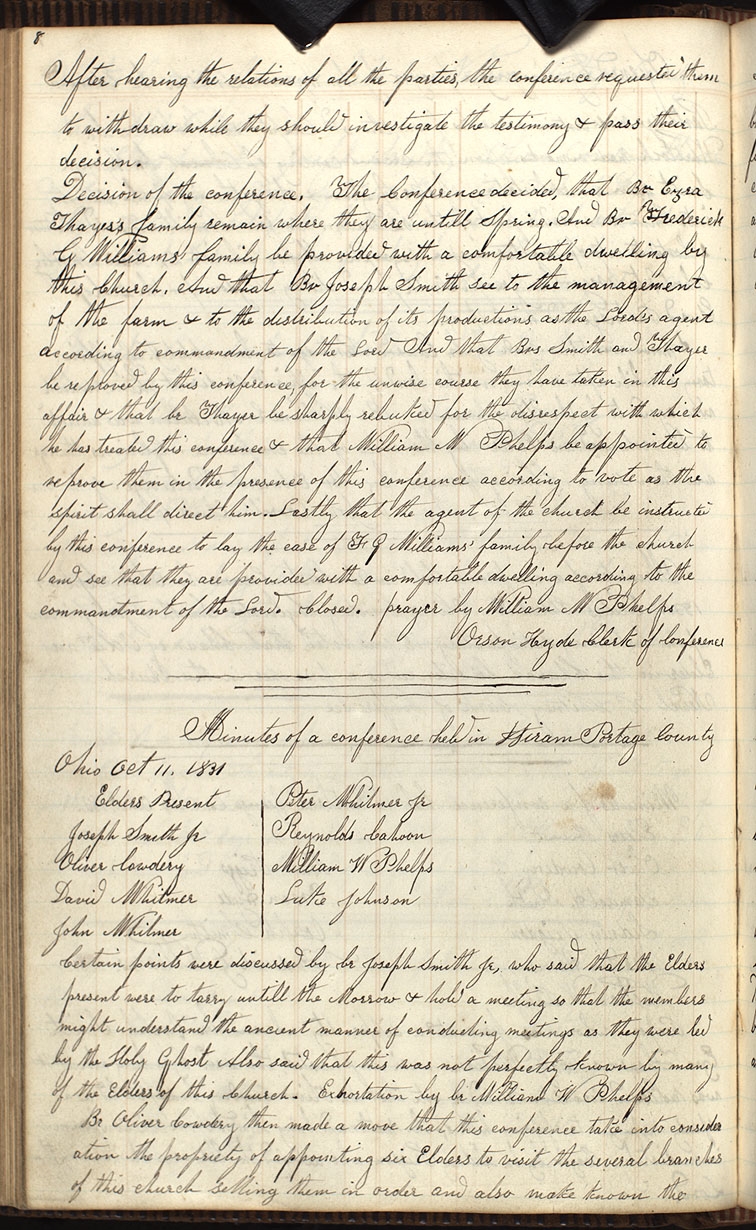 8
After hearing the relations of all the parties, the conference requested them
to withdraw while they should investigate the testimony & pass their
decision.
Decision of the conference. The Conference decided, that Br Ezra
Thayer's family remain where they are untill Spring. And Br Frederick
G Williams' family be provided with a comfortable dwelling by
this Church. And that Br Joseph Smith see to the management
of the farm & to the distribution of its productions as the Lord's agent
according to commandment of the Lord And that Brs Smith and Thayer
be reproved by this conference, for the unwise course they have taken in this
affair & that br Thayer be sharply rebuked for the disrespect with which
he has treated this conference & that William W Phelps be appointed to
reprove them in the presence of this conference according to vote as the
spirit shall direct him. Lastly that the agent of the church be instructed
by this conference to lay the case of F G Williams' family before the church
and see that they are provided with a comfortable dwelling according to the
commandment of the Lord. Closed. prayer by William W Phelps
Orson Hyde Clerk of Conference
Minutes of a conference held in Hiram Portage County
Ohio Oct 11. 1831
Elders Present
Joseph Smith Jr
Oliver Cowdery
David Whitmer
John Whitmer
Peter Whitmer Jr
Reynolds Cahoon
William W Phelps
Luke Johnson
Certain points were discussed by br Joseph Smith Jr, who said that the Elders
present were to tarry untill the Morrow & hold a meeting so that the members
might understand the ancient manner of conducting meetings as they were led
by the Holy Ghost Also said that this was not perfectly known by many
of the Elders of this Church. Exhortation by br William W Phelps
Br Oliver Cowdery then made a move that this conference take into consider
ation the propriety of appointing six Elders to visit the several branches
of this church setting them in order and also make known the